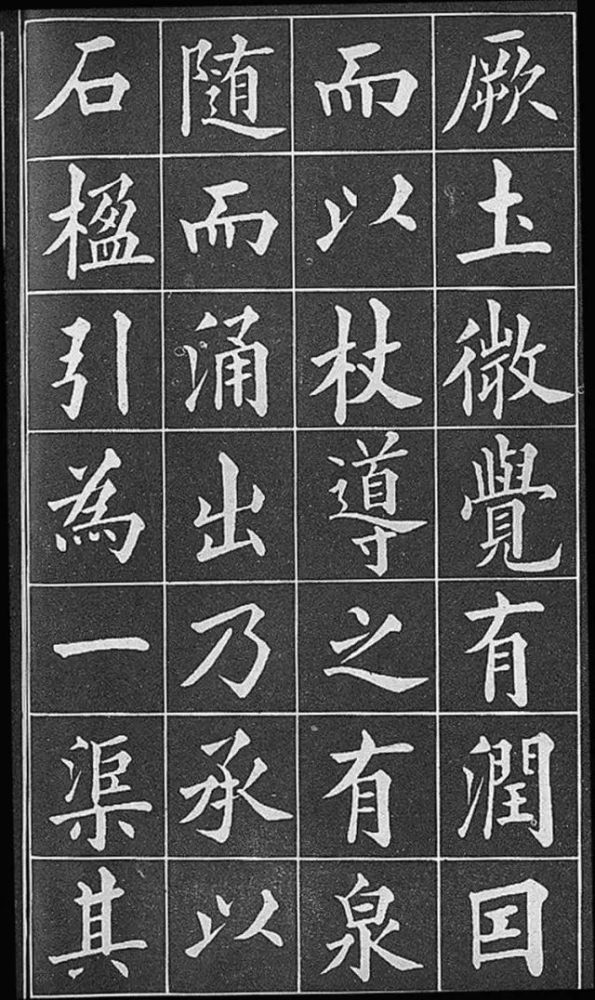 厥土微覺有潤囙
而以杖導之有泉
隨而涌出乃承以
石楹引為一渠其